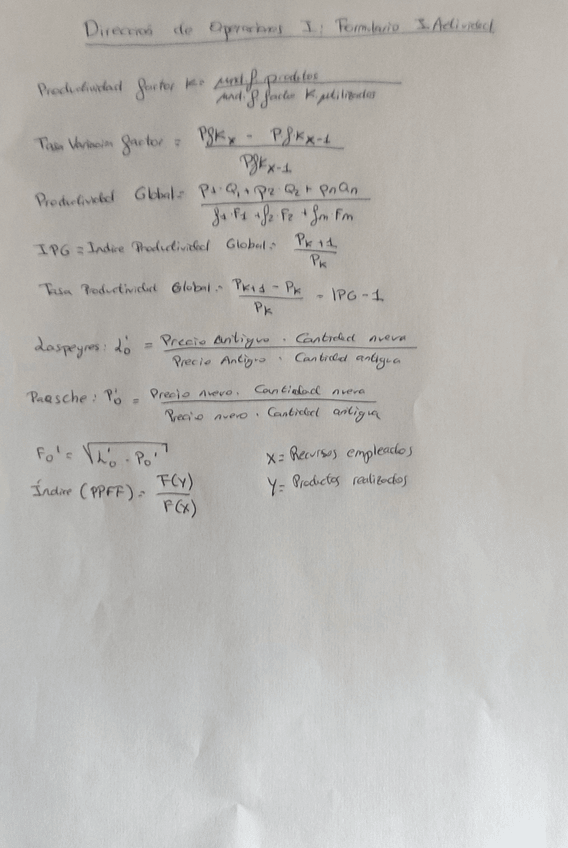 Dirección de Operaciones I: Formulario 1 Actividad
Productividad factor K = unid f. productos / unid. f factor K utilizados
Tasa Variación factor = PfKx - PfKx-1 / PfKx-1
Productividad Global = P1·Q1 + P2·Q2 + PnQn / f1·F1 + f2·F2 + fm·Fm
IPG = Indice Productividad Global = Pk+1 / Pk
Tasa Productividad Global = Pk+1 - Pk / Pk = IPG - 1
Laspeyres: L0' = Precio Antiguo · Cantidad nueva / Precio Antiguo · Cantidad antigua
Paasche: P0' = Precio nuevo · Cantidad nueva / Precio nuevo · Cantidad antigua
F0' = √L0' · P0'
X = Recursos empleados
Índice (PPFF) = F(Y) / F(X)
Y = Productos realizados